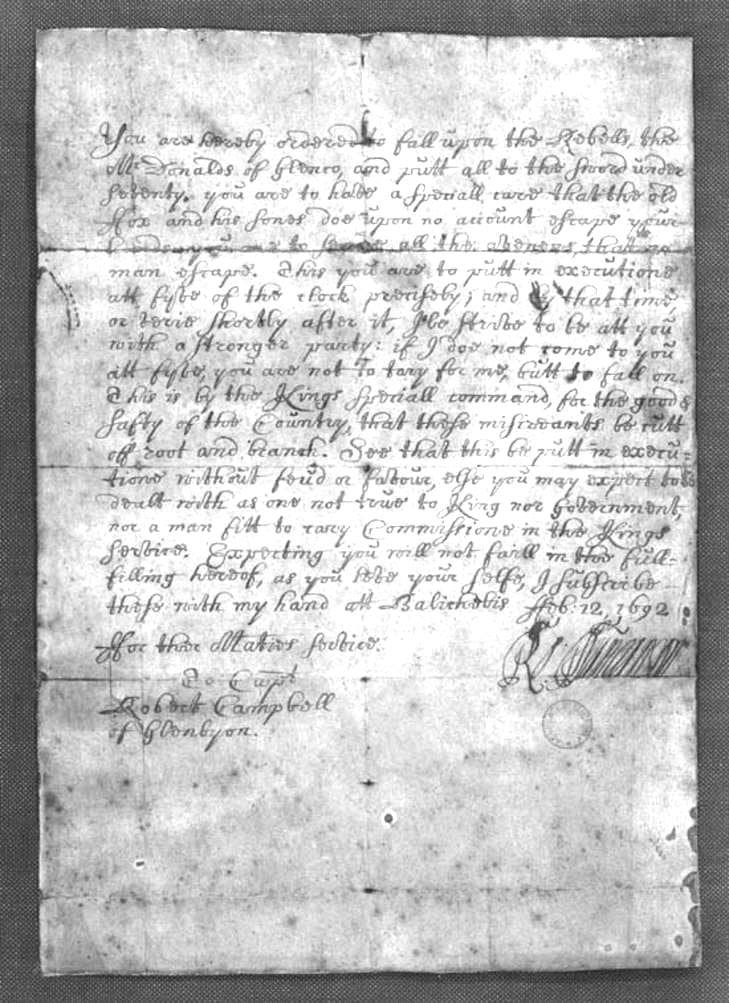 You are hereby ordered to fall upon the Rebells, the
McDonalds of Glenco, and putt all to the sword under
seventy. you are to have a speciall care that the old
ffox and his sones doe upon no account escape your
hands, you are to secure all the avenues, that no
man escape. This you are to putt in executione
att fyve of the clock precisely; and by that time
or verie shortly after it, I'le strive to be att you
with a stronger party: if I doe not come to you
att fyve, you are not to tary for me, butt to fall on.
This is by the Kings speciall command, for the good &
safty of the Country, that these miscreants be cutt
off root and branch. See that this be putt in execu-
tione without feud or favour, else you may expect to be
dealt with as one not true to King nor Government,
nor a man fitt to cary Commissione in the Kings
service. Expecting you will not faill in the full-
filling hereof, as you love your selfe, I subscribe
these with my hand att Balicholis ffeb: 12, 1692
ffor ther Maties service.
To Capt
Robert Campbell
of Glenlyon.